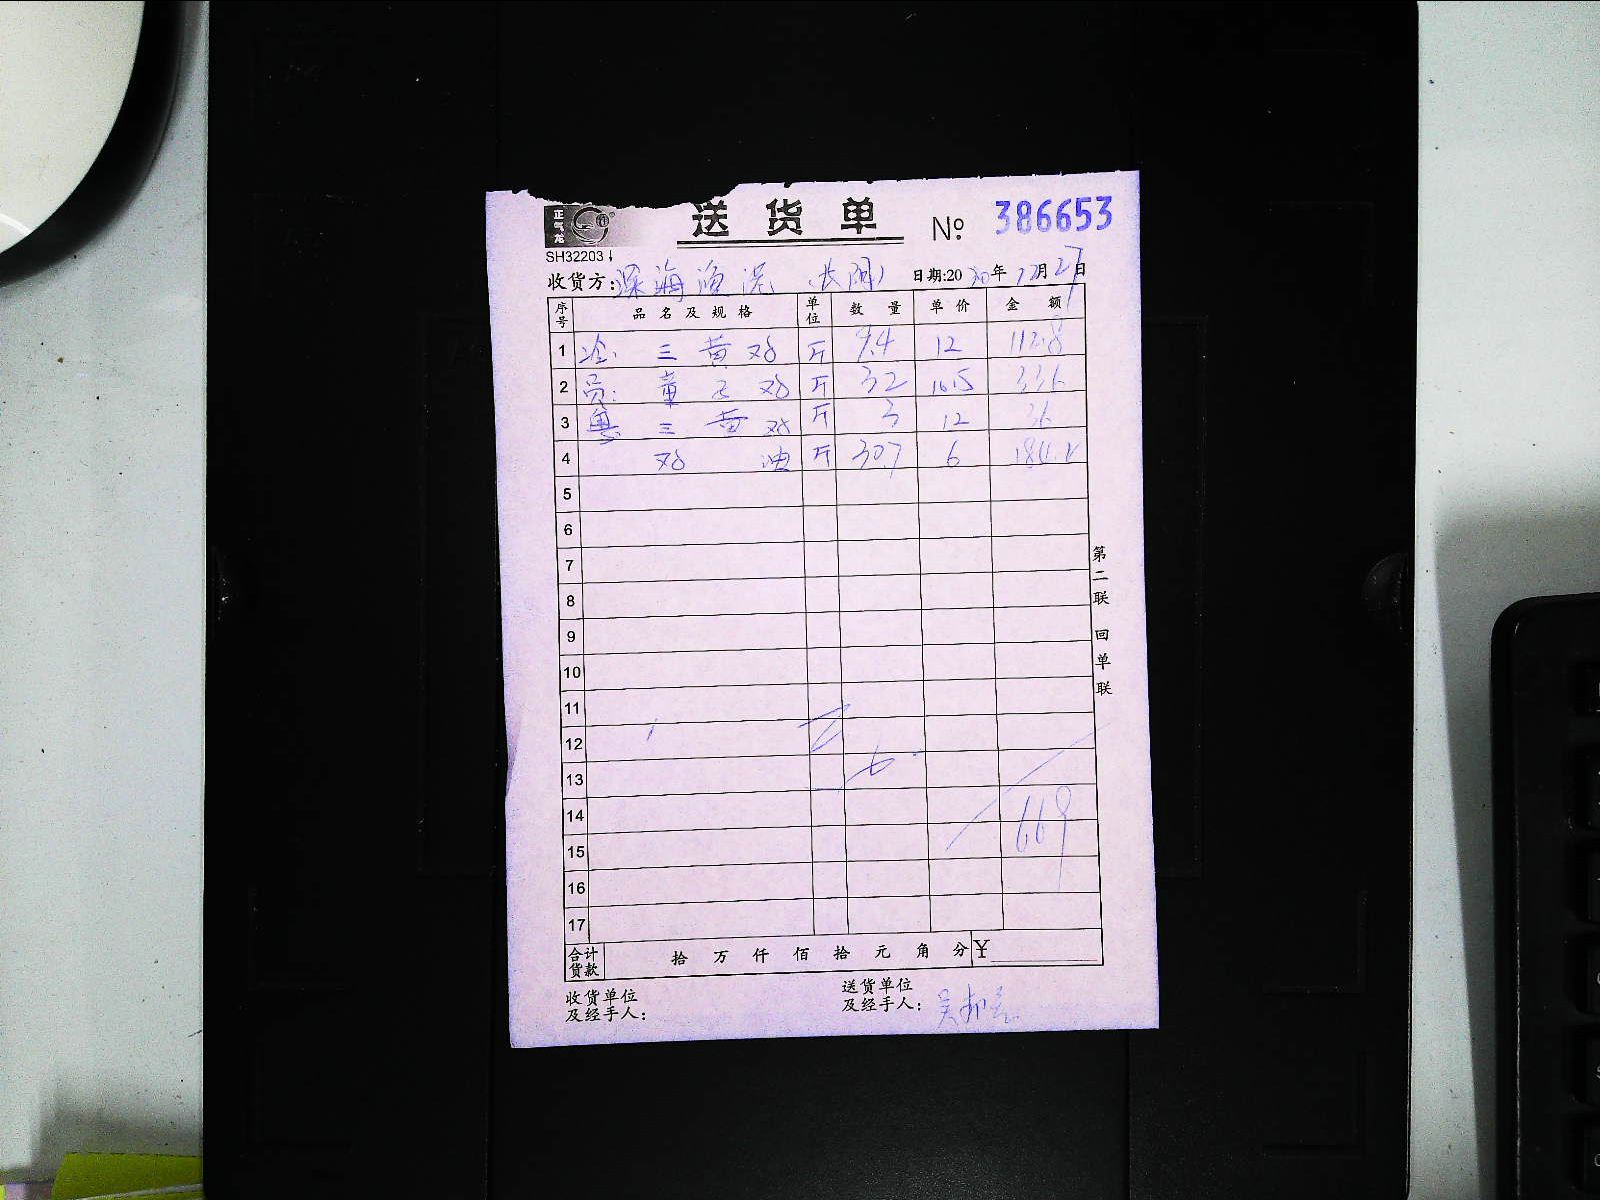 正气龙
送货单 № 386653
SH32203
收货方: 深海渔港 (长阳) 日期:2020年12月27日
序号 品名及规格 单位 数量 单价 金额
1 冷: 三黄鸡 斤 9.4 12 112.8
2 员: 童子鸡 斤 32 10.5 336
3 粤: 三黄鸡 斤 3 12 36
4 鸡油 斤 30.7 6 184.2
5
6
7
8
9
10
11
12
13
14
15
16
17
669
合计货款 拾 万 仟 佰 拾 元 角 分 ¥
第二联 回单联
收货单位 送货单位
及经手人: 及经手人: